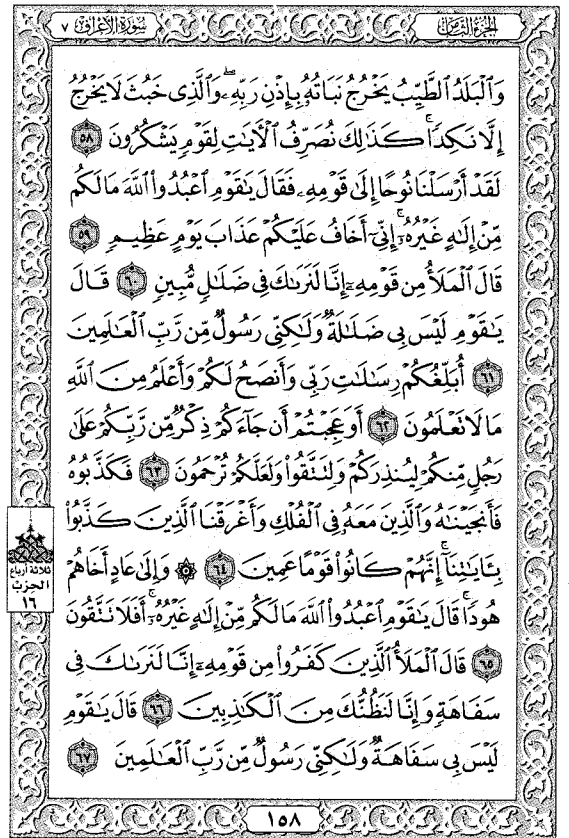 سورة الأعراف ٧
الجزء الثامن
وَٱلْبَلَدُ ٱلطَّيِّبُ يَخْرُجُ نَبَاتُهُۥ بِإِذْنِ رَبِّهِۦ ۖ وَٱلَّذِى خَبُثَ لَا يَخْرُجُ
إِلَّا نَكِدًا ۚ كَذَٰلِكَ نُصَرِّفُ ٱلْـَٔايَٰتِ لِقَوْمٍ يَشْكُرُونَ ٥٨
لَقَدْ أَرْسَلْنَا نُوحًا إِلَىٰ قَوْمِهِۦ فَقَالَ يَٰقَوْمِ ٱعْبُدُوا۟ ٱللَّهَ مَا لَكُم
مِّنْ إِلَٰهٍ غَيْرُهُۥٓ إِنِّىٓ أَخَافُ عَلَيْكُمْ عَذَابَ يَوْمٍ عَظِيمٍ ٥٩
قَالَ ٱلْمَلَأُ مِن قَوْمِهِۦٓ إِنَّا لَنَرَىٰكَ فِى ضَلَٰلٍ مُّبِينٍ ٦٠ قَالَ
يَٰقَوْمِ لَيْسَ بِى ضَلَٰلَةٌ وَلَٰكِنِّى رَسُولٌ مِّن رَّبِّ ٱلْعَٰلَمِينَ
٦١ أُبَلِّغُكُمْ رِسَٰلَٰتِ رَبِّى وَأَنصَحُ لَكُمْ وَأَعْلَمُ مِنَ ٱللَّهِ
مَا لَا تَعْلَمُونَ ٦٢ أَوَعَجِبْتُمْ أَن جَآءَكُمْ ذِكْرٌ مِّن رَّبِّكُمْ عَلَىٰ
رَجُلٍ مِّنكُمْ لِيُنذِرَكُمْ وَلِتَتَّقُوا۟ وَلَعَلَّكُمْ تُرْحَمُونَ ٦٣ فَكَذَّبُوهُ
فَأَنجَيْنَٰهُ وَٱلَّذِينَ مَعَهُۥ فِى ٱلْفُلْكِ وَأَغْرَقْنَا ٱلَّذِينَ كَذَّبُوا۟
بِـَٔايَٰتِنَآ ۚ إِنَّهُمْ كَانُوا۟ قَوْمًا عَمِينَ ٦٤ ۞ وَإِلَىٰ عَادٍ أَخَاهُمْ
هُودًا ۗ قَالَ يَٰقَوْمِ ٱعْبُدُوا۟ ٱللَّهَ مَا لَكُم مِّنْ إِلَٰهٍ غَيْرُهُۥٓ ۚ أَفَلَا تَتَّقُونَ
٦٥ قَالَ ٱلْمَلَأُ ٱلَّذِينَ كَفَرُوا۟ مِن قَوْمِهِۦٓ إِنَّا لَنَرَىٰكَ فِى
سَفَاهَةٍ وَإِنَّا لَنَظُنُّكَ مِنَ ٱلْكَٰذِبِينَ ٦٦ قَالَ يَٰقَوْمِ
لَيْسَ بِى سَفَاهَةٌ وَلَٰكِنِّى رَسُولٌ مِّن رَّبِّ ٱلْعَٰلَمِينَ ٦٧
ثلاثة أرباع
الحزب
١٦
١٥٨